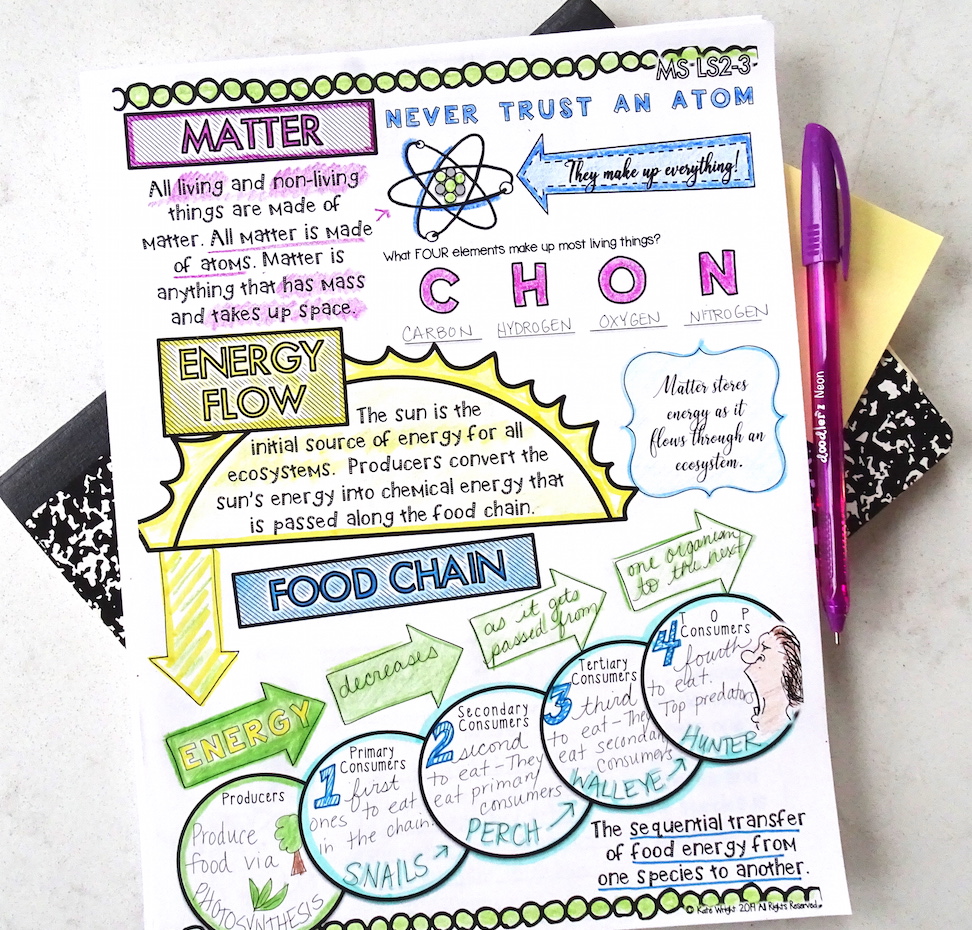 MS-LS2-3
MATTER
All living and non-living
things are made of
matter. All matter is made
of atoms. Matter is
anything that has mass
and takes up space.
NEVER TRUST AN ATOM
They make up everything!
What FOUR elements make up most living things?
C H O N
CARBON HYDROGEN OXYGEN NITROGEN
ENERGY
FLOW
The sun is the
initial source of energy for all
ecosystems. Producers convert the
sun's energy into chemical energy that
is passed along the food chain.
Matter stores
energy as it
flows through an
ecosystem.
doodler'z Neon
FOOD CHAIN
ENERGY
decreases
as it gets
passed from
one organism
to the next
Producers
Produce
food via
PHOTOSYNTHESIS
Primary
Consumers
1 first
ones to eat
in the chain.
SNAILS →
Secondary
Consumers
2 second
to eat - They
eat primary
consumers
PERCH →
Tertiary
Consumers
3 third
to eat - They
eat secondary
consumers
WALLEYE →
TOP
Consumers
4 fourth
to eat.
Top predators
HUNTER
The sequential transfer
of food energy from
one species to another.
© Kate Wright 2019 All Rights Reserved.